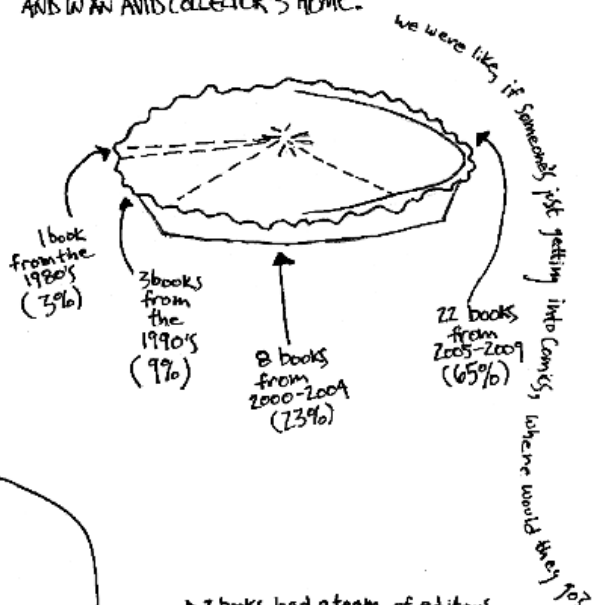 AND IN AN AVID COLLECTOR'S HOME.
we were like, if someone's just getting into Comics, where would they go?
1 book
from the
1980's
(3%)
3 books
from
the
1990's
(9%)
8 books
from
2000-2004
(23%)
22 books
from
2005-2009
(65%)
7 books had a team of editors